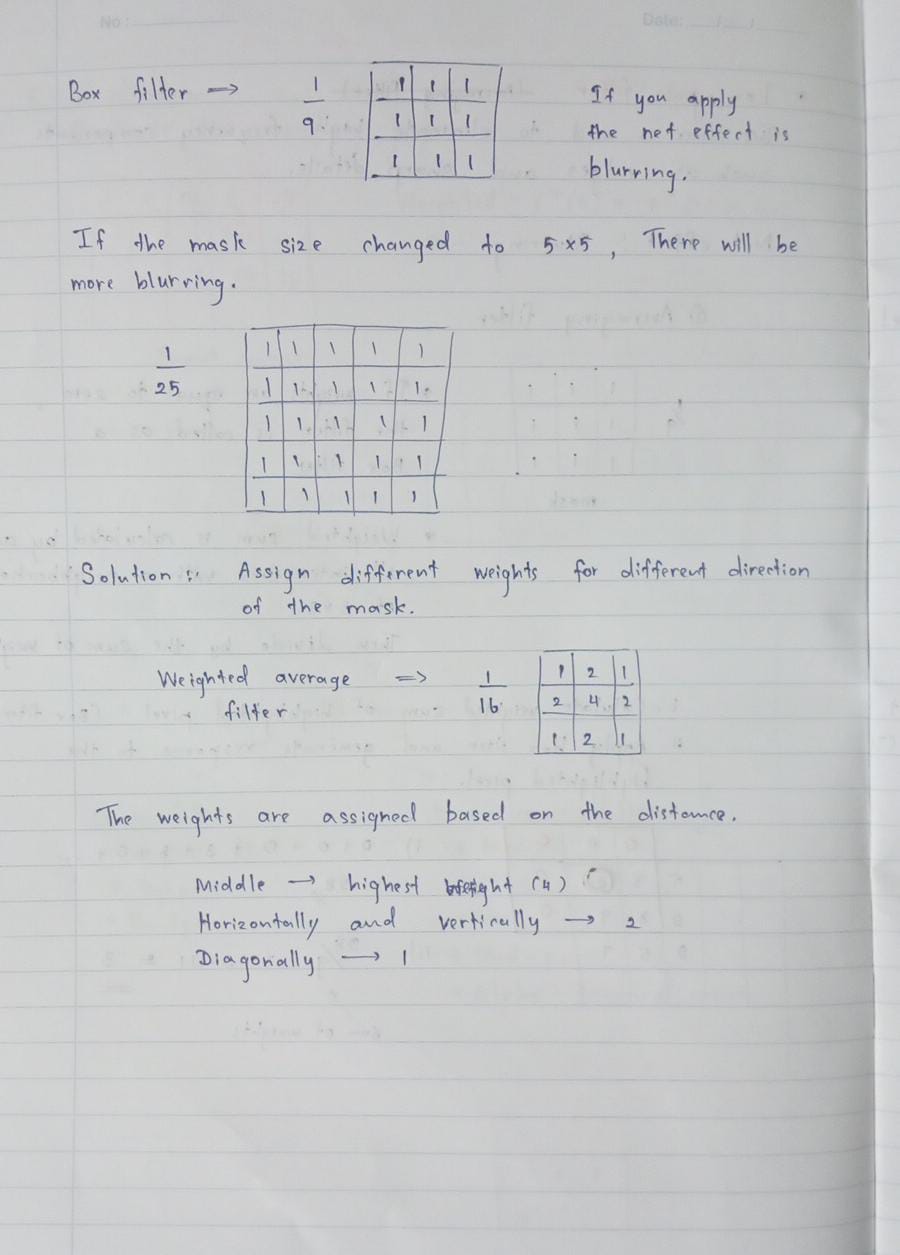 No : Date: / /
Box filter → 1/9
1 1 1
1 1 1
1 1 1
If you apply
the net effect is
blurring.
If the mask size changed to 5×5, There will be
more blurring.
1/25
1 1 1 1 1
1 1 1 1 1
1 1 1 1 1
1 1 1 1 1
1 1 1 1 1
Solution :: Assign different weights for different direction
of the mask.
Weighted average ⇒ 1/16
filter
1 2 1
2 4 2
1 2 1
The weights are assigned based on the distance.
Middle → highest weight (4)
Horizontally and vertically → 2
Diagonally → 1